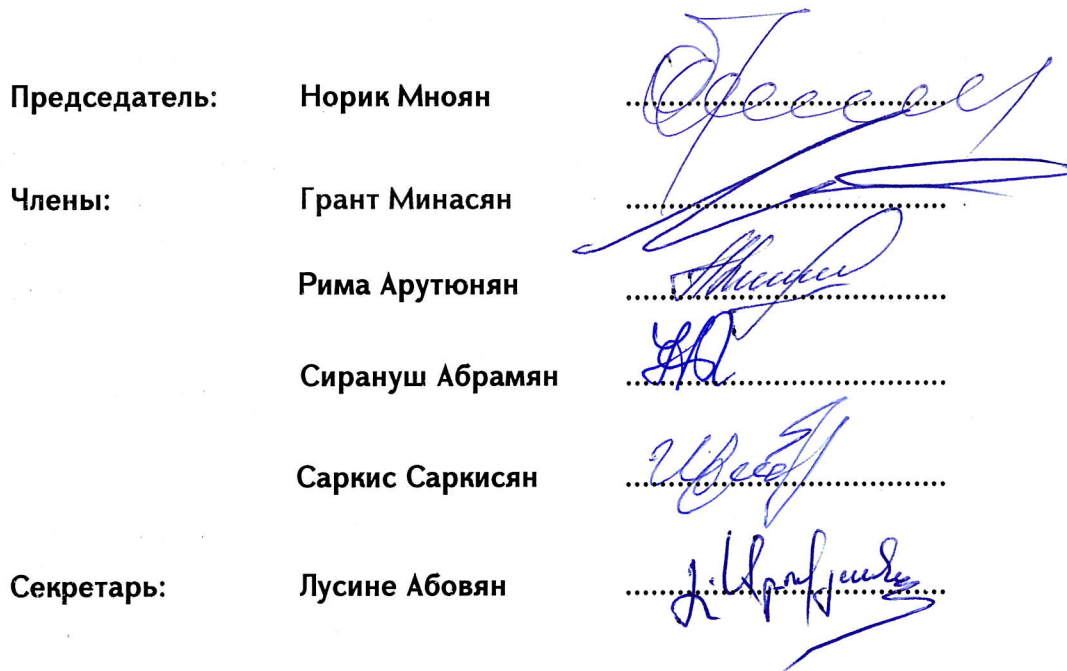 Председатель: Норик Мноян
Члены: Грант Минасян
Рима Арутюнян
Сирануш Абрамян
Саркис Саркисян
Секретарь: Лусине Абовян